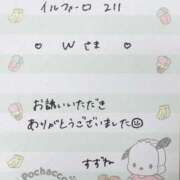 イルファーロ 211
♡ Wさま ♡
お誘いいただき
ありがとうございました☺
すずね
Pochacco